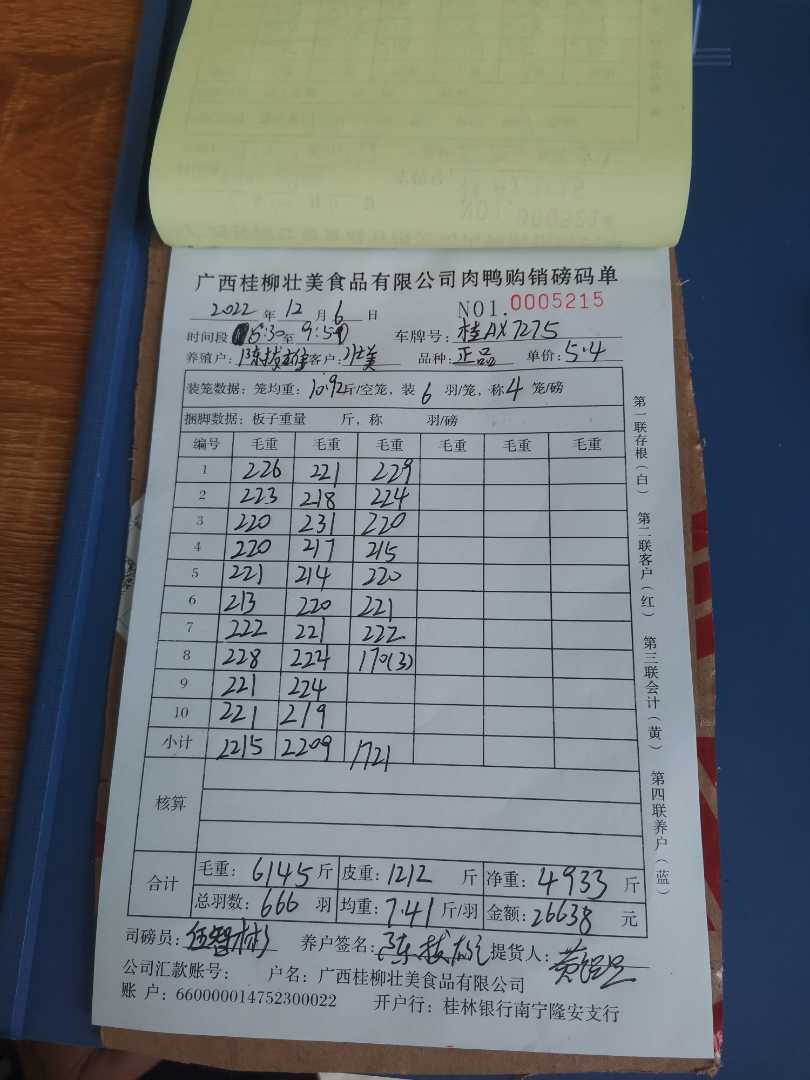 广西桂柳壮美食品有限公司肉鸭购销磅码单
2022 年 12 月 6 日 NO1.0005215
时间段 5:30 至 9:50 车牌号: 桂AX7275
养殖户: 陈拔雄 客户: 壮美 品种: 正品 单价: 5.4
装笼数据: 笼均重: 10.92斤/空笼, 装 6 羽/笼, 称 4 笼/磅
捆脚数据: 板子重量 斤, 称 羽/磅
编号 毛重 毛重 毛重 毛重 毛重 毛重
1 226 221 229
2 223 218 224
3 220 231 220
4 220 217 215
5 221 214 220
6 213 220 221
7 222 221 222
8 228 224 170(3)
9 221 224
10 221 219
小计 2215 2209 1721
核算
合计 毛重: 6145 斤 皮重: 1212 斤 净重: 4933 斤
总羽数: 666 羽 均重: 7.41 斤/羽 金额: 26638 元
司磅员: 伍智彬 养户签名: 陈拔雄 提货人: 黄
公司汇款账号: 户名: 广西桂柳壮美食品有限公司
账 户: 660000014752300022 开户行: 桂林银行南宁隆安支行
第一联存根(白) 第二联客户(红) 第三联会计(黄) 第四联养户(蓝)